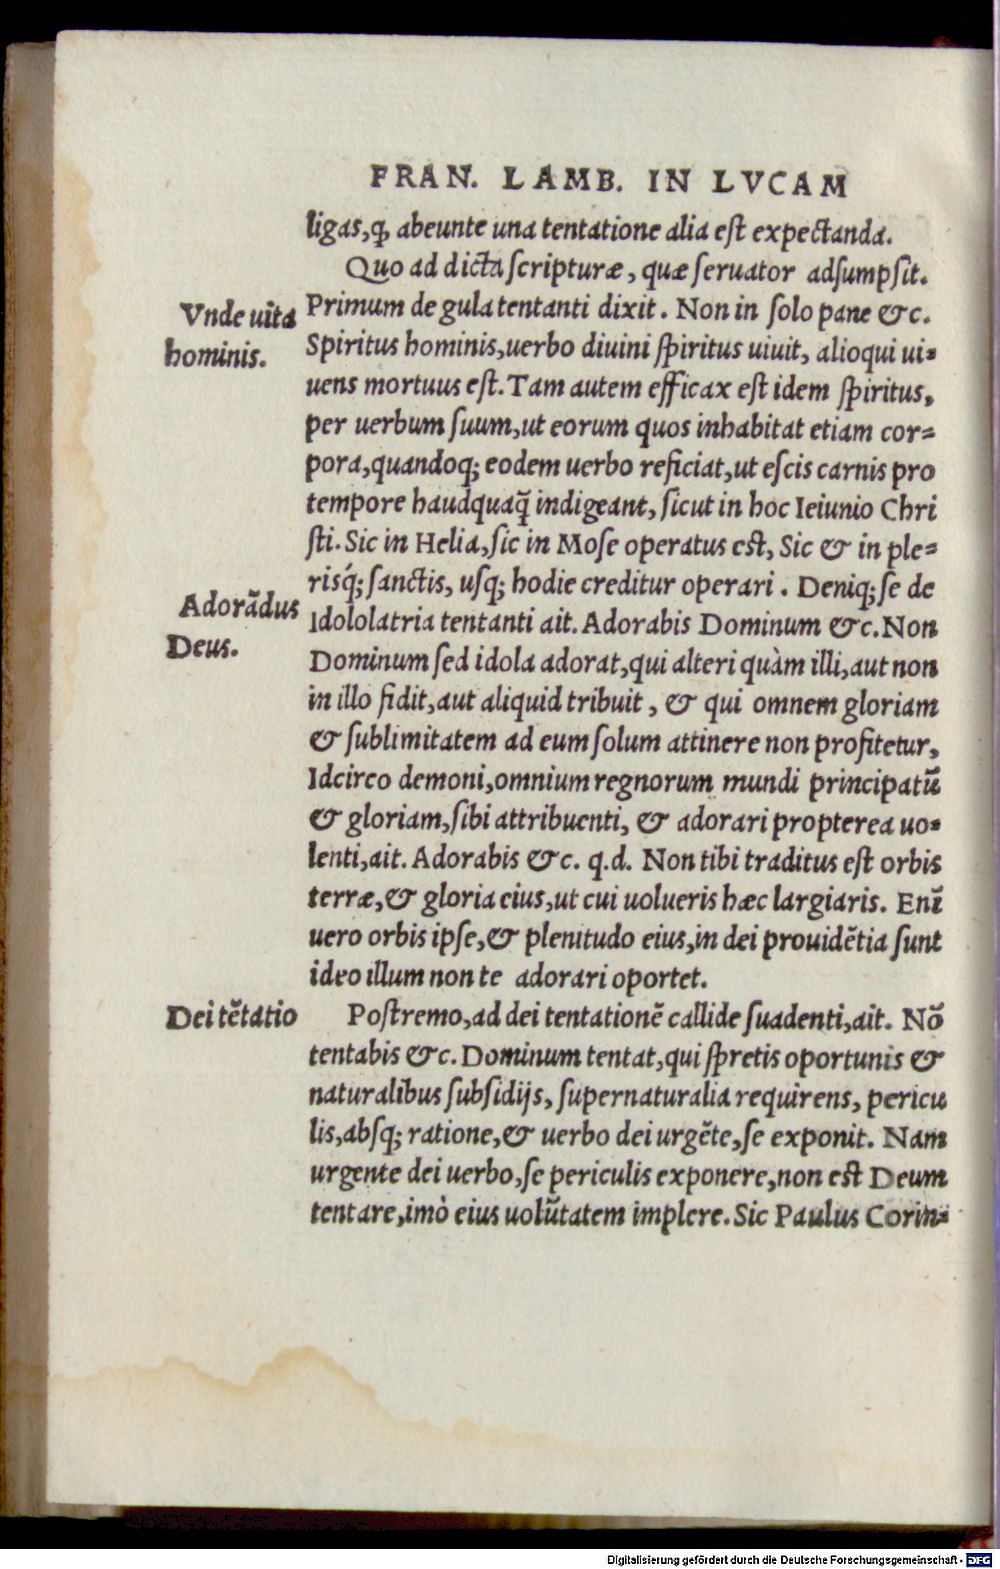 FRAN. LAMB. IN LVCAM
ligas, ꝙ abeunte una tentatione alia est expectanda.
Quo ad dicta scripturæ, quæ seruator adsumpsit.
Vnde uita
hominis.
Primum de gula tentanti dixit. Non in solo pane &c.
Spiritus hominis, uerbo diuini spiritus uiuit, alioqui ui=
uens mortuus est. Tam autem efficax est idem spiritus,
per uerbum suum, ut eorum quos inhabitat etiam cor=
pora, quandoq; eodem uerbo reficiat, ut escis carnis pro
tempore haudquaq̃ indigeant, sicut in hoc Ieiunio Chri
sti. Sic in Helia, sic in Mose operatus est, Sic & in ple=
risq́; sanctis, usq; hodie creditur operari. Deniq; se de
Adorãdus
Deus.
Idololatria tentanti ait. Adorabis Dominum &c. Non
Dominum sed idola adorat, qui alteri quàm illi, aut non
in illo fidit, aut aliquid tribuit, & qui omnem gloriam
& sublimitatem ad eum solum attinere non profitetur,
Idcirco demoni, omnium regnorum mundi principatũ
& gloriam, sibi attribuenti, & adorari propterea uo=
lenti, ait. Adorabis &c. q.d. Non tibi traditus est orbis
terræ, & gloria eius, ut cui uolueris hæc largiaris. Enĩ
uero orbis ipse, & plenitudo eius, in dei prouidẽtia sunt
ideo illum non te adorari oportet.
Dei tẽtatio
Postremo, ad dei tentationẽ callide suadenti, ait. Nõ
tentabis &c. Dominum tentat, qui spretis oportunis &
naturalibus subsidijs, supernaturalia requirens, pericu
lis, absq; ratione, & uerbo dei urgẽte, se exponit. Nam
urgente dei uerbo, se periculis exponere, non est Deum
tentare, imò eius uolũtatem implere. Sic Paulus Corin=
Digitalisierung gefördert durch die Deutsche Forschungsgemeinschaft - DFG